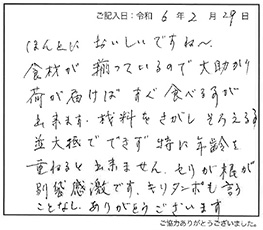 ご記入日：令和 6 年 2 月 29 日
ほんとに おいしいですね〜。
食材が 揃っているので 大助かり
荷が届けば すぐ 食べる事が
出来ます。材料を さがし そろえる事
並大抵で できず 特に 年齢を
重ねると 出来ません。セリが 根が
別袋 感激です。キリタンポも 言う
ことなし。ありがとうございます
ご協力ありがとうございました。